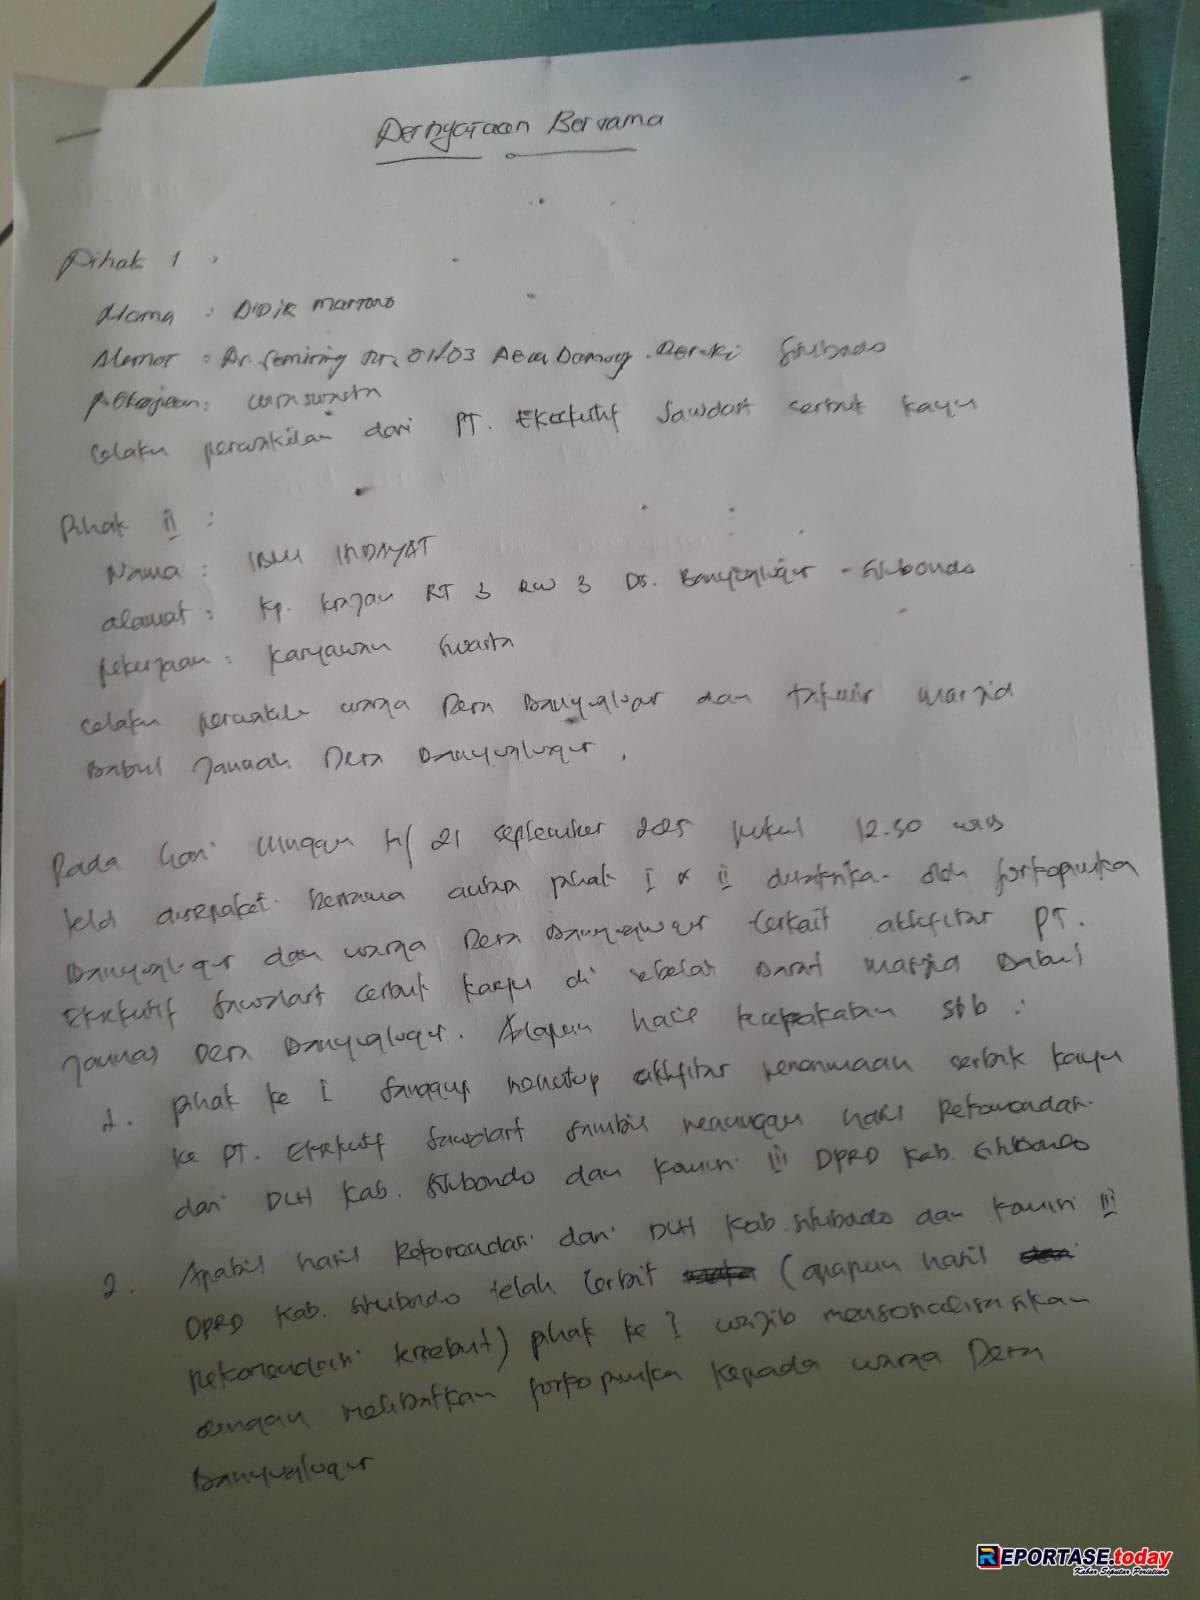 Pernyataan Bersama
Pihak 1 :
Nama : Didik Martono
Alamat : Dr. Semiring RT 01/03 Desa Demung Besuki Situbondo
Pekerjaan : wiraswasta
Selaku perwakilan dari PT. Eksekutif Sawdast serbuk kayu
Pihak II :
Nama : IBNU HIDAYAT
alamat : Kp. Krajan RT 3 RW 3 Ds. Banyuglugur - Situbondo
Pekerjaan : Karyawan Swasta
Selaku perwakilan warga Desa Banyuglugur dan takmir Masjid
Babul Jannah Desa Banyuglugur.
Pada hari Minggu tgl 21 september 2025 pukul 12.50 WIB
telah disepakati bersama antara pihak I & II disaksikan oleh forkopimka
Banyuglugur dan warga Desa Banyuglugur terkait aktifitas PT.
Eksekutif Sawdart serbuk kayu di sebelah Barat Masjid Babul
Jannah Desa Banyuglugur. Adapun hasil kesepakatan sbb :
1. pihak ke I sanggup menutup aktifitas penerimaan serbuk kayu
ke PT. Eksekutif Sawdart sambil menunggu hasil Rekomendasi
dari DLH Kab. Situbondo dan Komisi III DPRD Kab. Situbondo
2. Apabila hasil Rekomendasi dari DLH Kab. Situbondo dan Komisi III
DPRD Kab. Situbondo telah terbit (apapun hasil
Rekomendasi tersebut) pihak ke I wajib mensosialisasikan
dengan melibatkan forkopimka kepada warga Desa
Banyuglugur
REPORTASE.today
Kabar Seputar Peristiwa